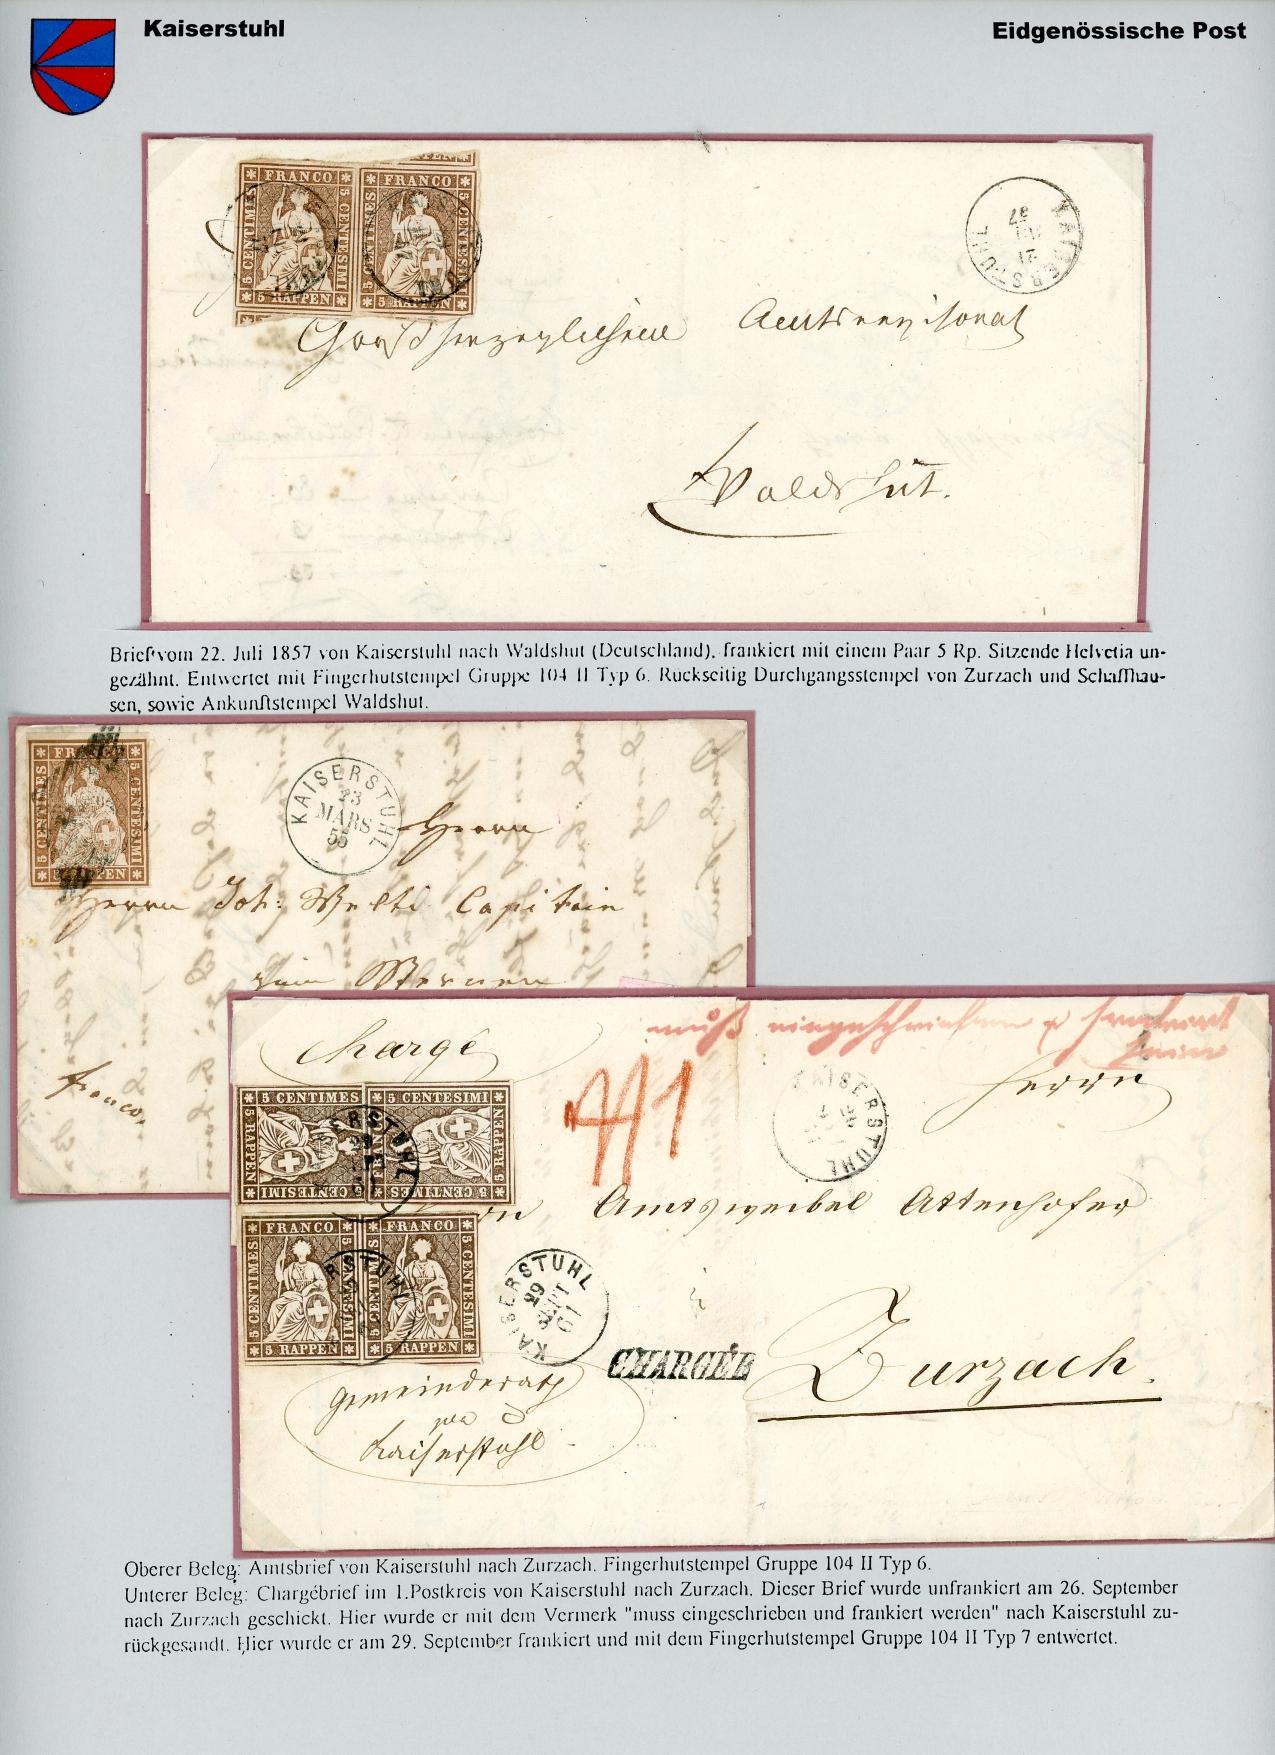 Kaiserstuhl
Eidgenössische Post
FRANCO FRANCO
5 CENTIMES 5 CENTESIMI 5 CENTIMES 5 CENTESIMI
5 RAPPEN 5 RAPPEN
KAISERSTUHL
Waldshut.
Brief vom 22. Juli 1857 von Kaiserstuhl nach Waldshut (Deutschland), frankiert mit einem Paar 5 Rp. Sitzende Helvetia un-
gezähnt. Entwertet mit Fingerhutstempel Gruppe 104 II Typ 6. Rückseitig Durchgangsstempel von Zurzach und Schaffhau-
sen, sowie Ankunftstempel Waldshut.
5 CENTIMES 5 CENTESIMI
KAISERSTUHL
23
MARS
55
Herrn
Herrn Joh: Welti Capitain
franco,
Chargé
muß eingeschrieben & frankiert
Herrn
5 CENTIMES 5 CENTESIMI
5 RAPPEN 5 RAPPEN
5 CENTESIMI 5 CENTIMES
KAISERSTUHL
Amtsweibel Attenhofer
FRANCO FRANCO
5 CENTIMES 5 CENTESIMI
5 RAPPEN 5 RAPPEN
KAISERSTUHL
29
SEPT
61
CHARGÉE
Zurzach.
Gemeinderath
Kaiserstuhl
Oberer Beleg: Amtsbrief von Kaiserstuhl nach Zurzach. Fingerhutstempel Gruppe 104 II Typ 6.
Unterer Beleg: Chargébrief im 1.Postkreis von Kaiserstuhl nach Zurzach. Dieser Brief wurde unfrankiert am 26. September
nach Zurzach geschickt. Hier wurde er mit dem Vermerk "muss eingeschrieben und frankiert werden" nach Kaiserstuhl zu-
rückgesandt. Hier wurde er am 29. September frankiert und mit dem Fingerhutstempel Gruppe 104 II Typ 7 entwertet.